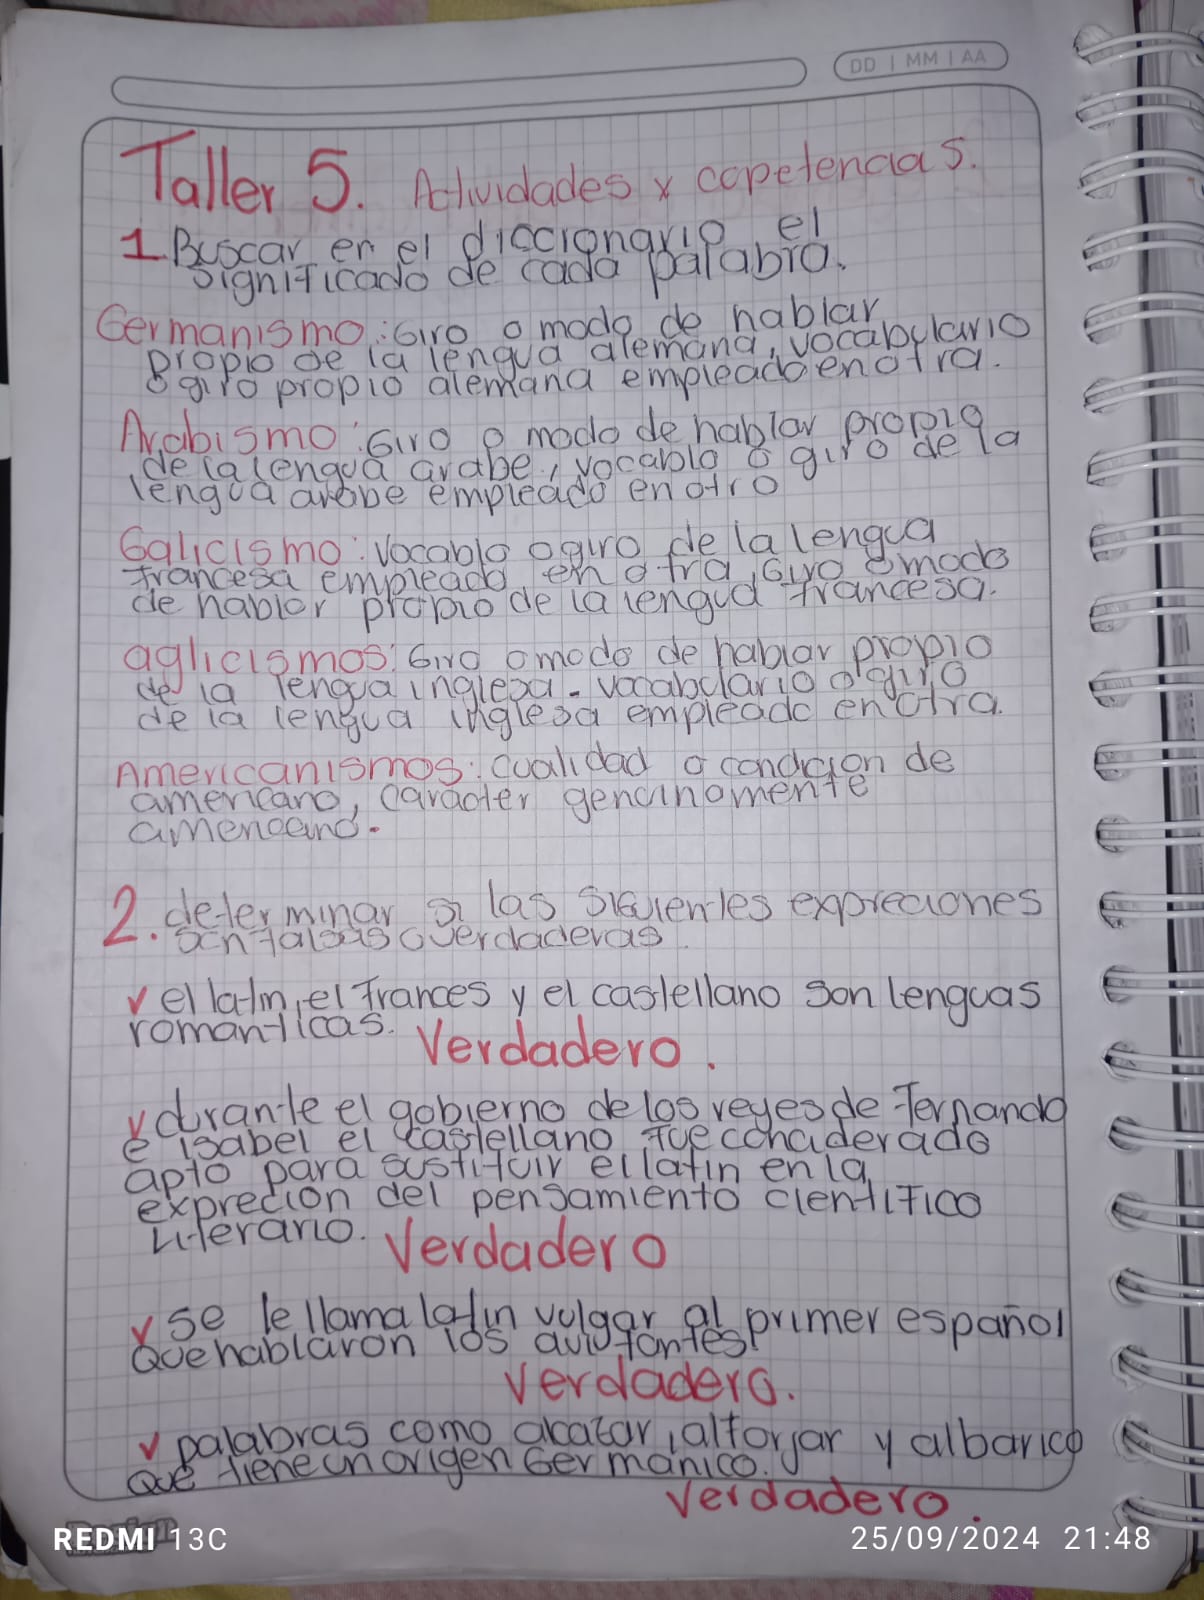 DD | MM | AA
Taller 5. Actividades y copetencias.
1. Buscar en el diccionario el
significado de cada palabra.
Germanismo: Giro o modo de hablar
propio de la lengua alemana, vocabulario
o giro propio alemana empleado en otra.
Arabismo: Giro o modo de hablar propio
de la lengua arabe, vocablo o giro de la
lengua arabe empleado en otro
Galicismo: Vocablo o giro de la lengua
francesa empleado en otra, Giro o modo
de hablar propio de la lengua francesa.
aglicismos: Giro o modo de hablar propio
de la lengua inglesa. vocabulario o giro
de la lengua inglesa empleado en otra.
Americanismos: cualidad o condicion de
americano, caracter genuinamente
americano.
2. determinar si las siguientes expreciones
son falsas o verdaderas.
v el latin, el frances y el castellano son lenguas
romanticas. Verdadero.
v durante el gobierno de los reyes de Fernando
e isabel el castellano fue conciderado
apto para sustituir el latin en la
exprecion del pensamiento cientifico
Literario. Verdadero
v se le llama latin vulgar al primer español
Que hablaron los
Verdadero.
v palabras como alforjar y albarico
Que tiene un origen Germanico.
Verdadero.
REDMI 13C
25/09/2024 21:48